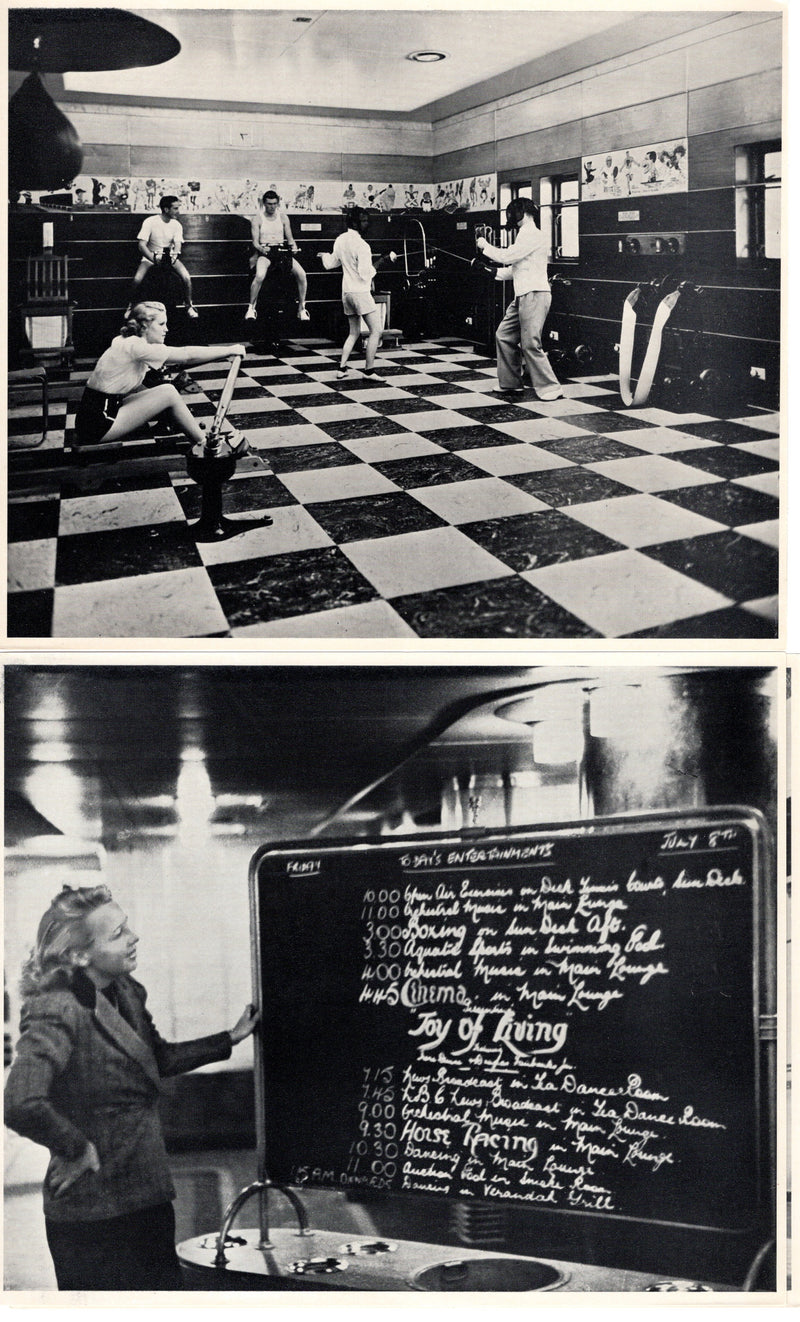 FRIDAY TODAY'S ENTERTAINMENTS JULY 8TH
10.00 Open Air Exercises on Deck Tennis Courts, Sun Deck
11.00 Orchestral Music in Main Lounge
3.00 Boxing on Sun Deck Aft.
3.30 Aquatic Sports in Swimming Pool
4.00 Orchestral Music in Main Lounge
4.45 Cinema in Main Lounge
Presenting
"Joy of Living"
Irene Dunne & Douglas Fairbanks Jr.
7.15 News Broadcast in Tea Dance Room
7.45 N.B.C News Broadcast in Tea Dance Room
9.00 Orchestral Music in Main Lounge.
9.30 Horse Racing in Main Lounge.
10.30 Dancing in Main Lounge
11.00 Auction Pool in Smoke Room
A.M. ONWARDS Dancing in Verandah Grill.